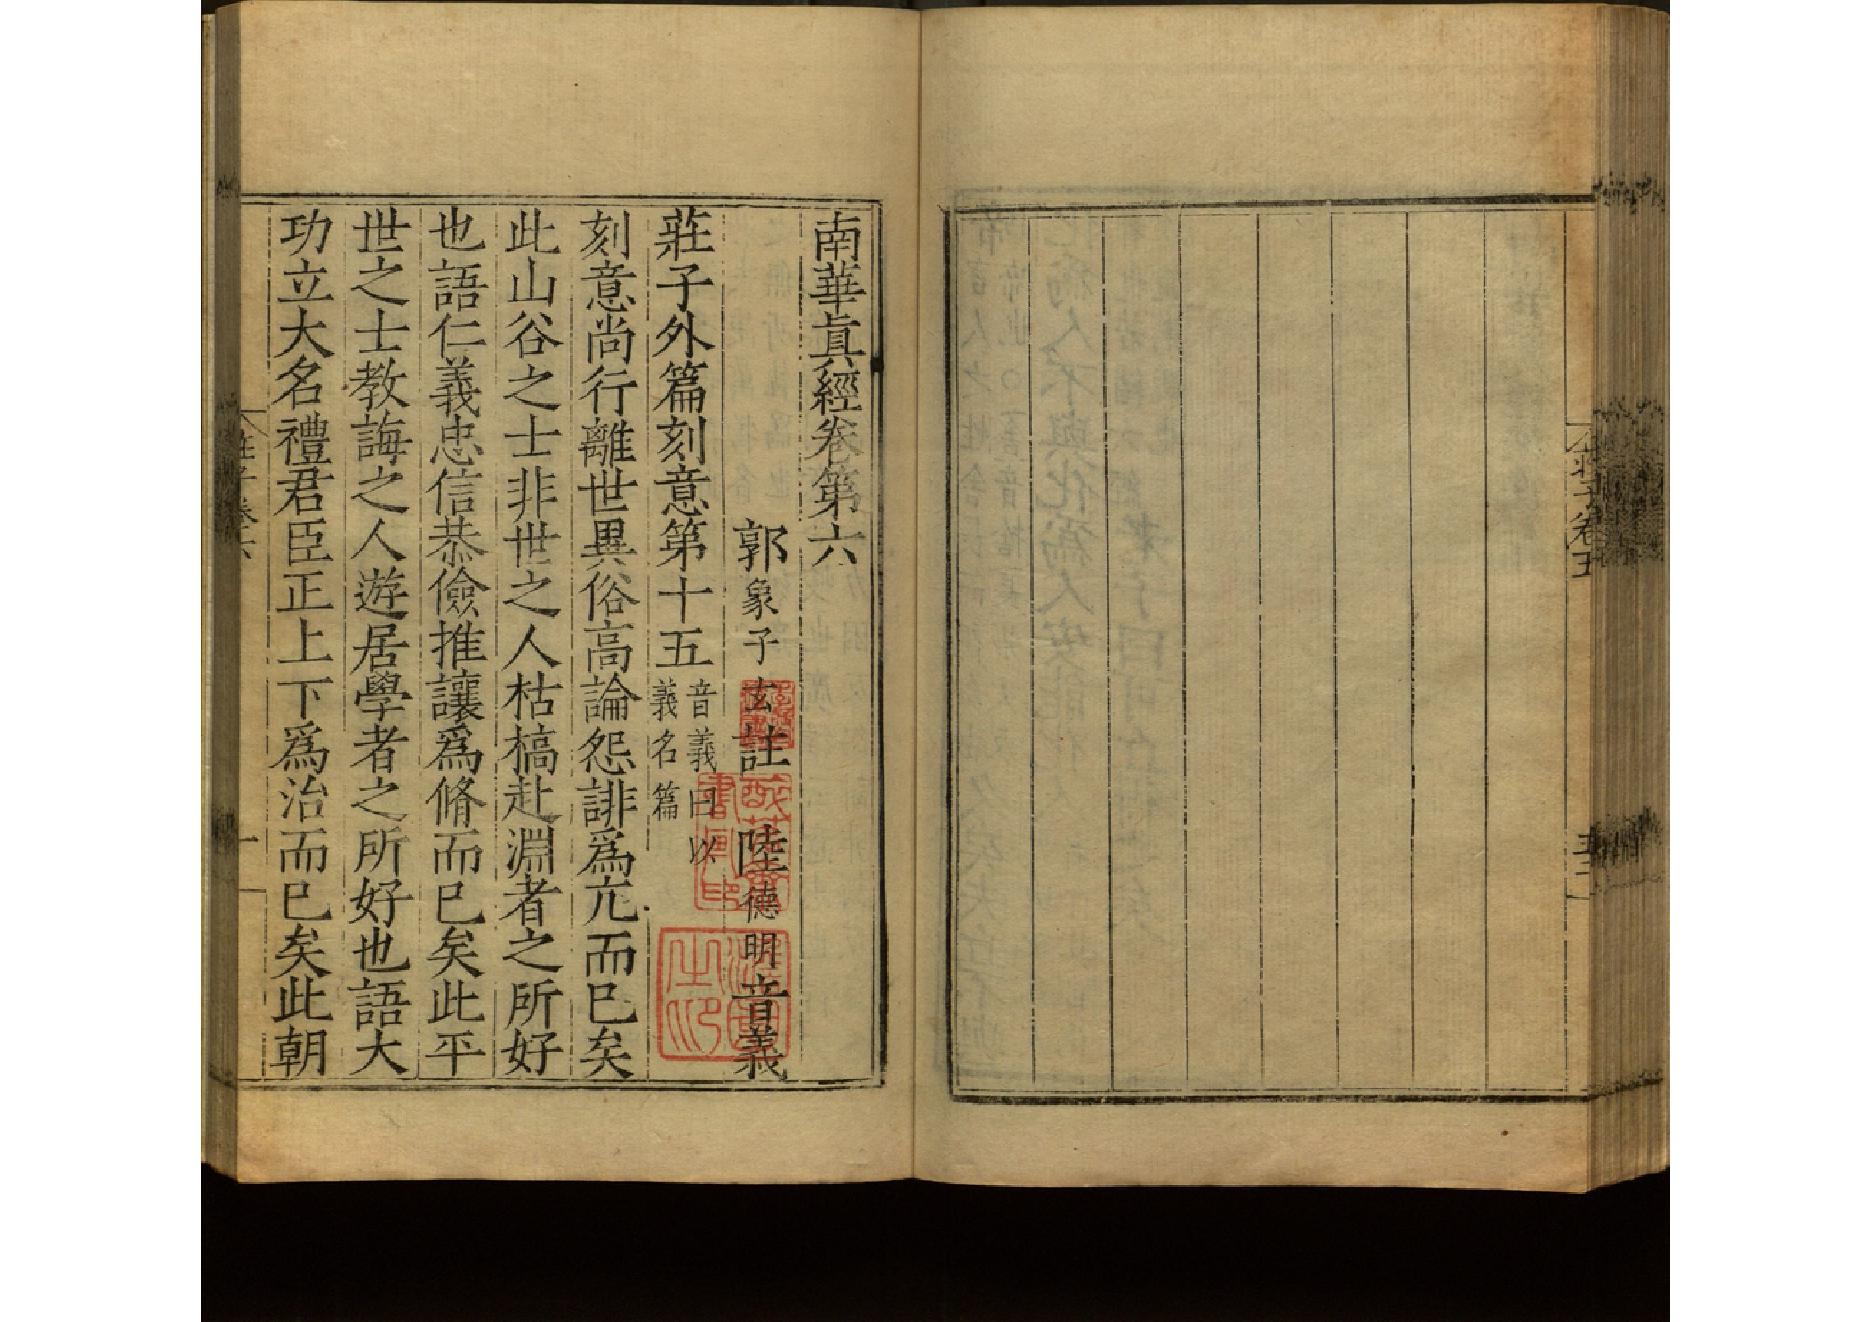 莊子卷五
南華眞經卷第六
郭象子玄註 陸德明音義
莊子外篇刻意第十五 音義曰以
義名篇
刻意尚行離世異俗高論怨誹爲亢而已矣
此山谷之士非世之人枯槁赴淵者之所好
也語仁義忠信恭儉推讓爲脩而已矣此平
世之士教誨之人遊居學者之所好也語大
功立大名禮君臣正上下爲治而已矣此朝
莊子卷六
一